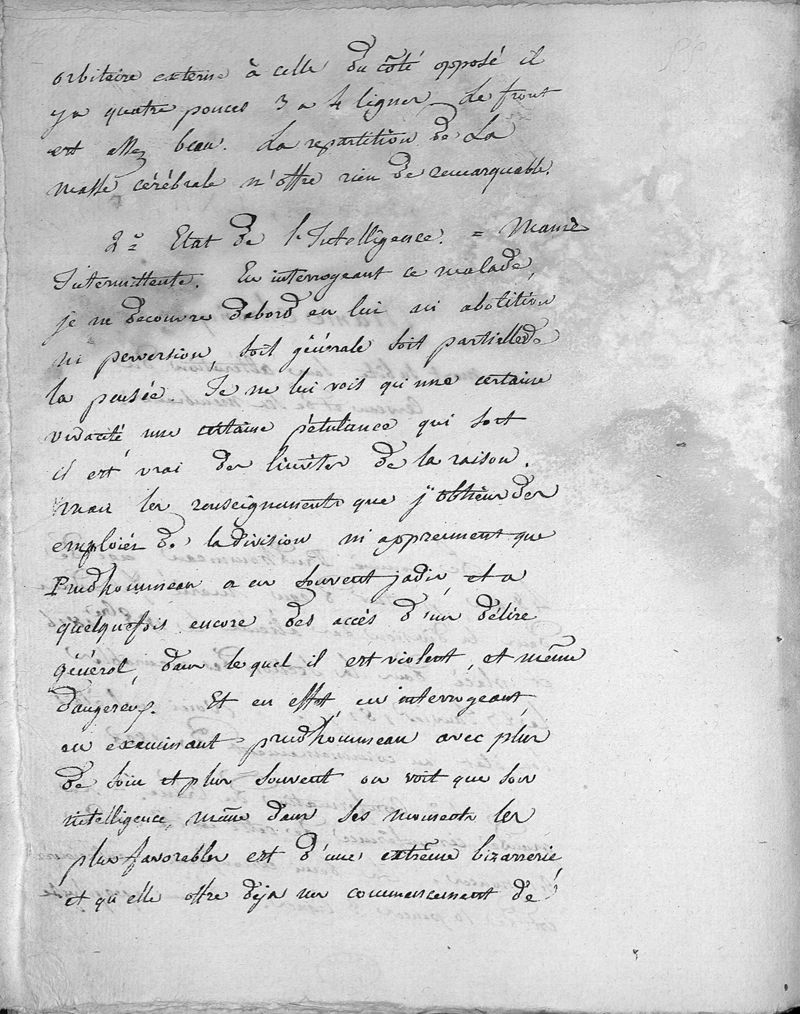 orbitaire externe à celle du côté opposé il
ya quatre pouces 3 a 4 lignes. Le front
est assez beau. La repartition de La
masse cérébrale n'offre rien de remarquable.
2.° Etat de l'Intelligence. = Manie
Intermittente. En interrogeant ce malade,
je ne decouvre d'abord en lui ni abolition
ni perversion, soit générale soit partielle de
la pensée. Je ne lui vois qu'une certaine
vivacité une certaine pétulance qui sort
il est vrai des limites de la raison.
mais les renseignements que j'obtiens des
emploiés de la division m'apprennent que
Prudhommeau a eu souvent jadis, et a
quelquefois encore des accès d'un délire
général, dans lequel il est violent, et même
dangereux. Et en effet, en interrogeant,
en examinant prudhommeau avec plus
de soin et plus souvent on voit que son
intelligence, même dans ses moments les
plus favorables est d'une extrême bizarrerie,
et qu'elle offre déja un commencement de